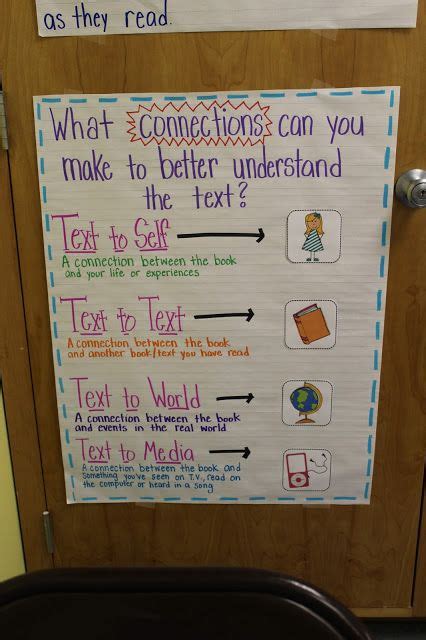 as they read.
What connections can you
make to better understand
the text?
Text to Self
A connection between the book
and your life or experiences
Text to Text
A connection between the book
and another book/text you have read
Text to World
A connection between the book
and events in the real world
Text to Media
A connection between the book and
something you've seen on T.V., read on
the computer or heard in a song